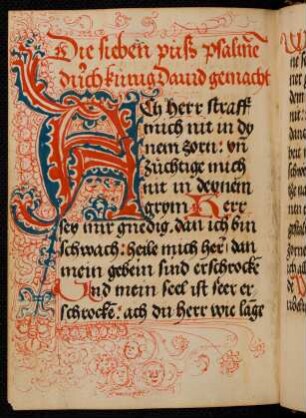 Die sieben puſß pſalmē
durch künig Dauid gemacht
ACh herr ſtraff
mich nit in dy
nem zorn : vn̄
züchtige mich
nit in deynem
grym Herr
ſey mir gnedig, dañ ich bin
ſchwach : heile mich her : dan
mein gebein ſind erſchrockē
Und mein ſeel iſt ſeer er
ſchrockē. ach du herr wie lāge